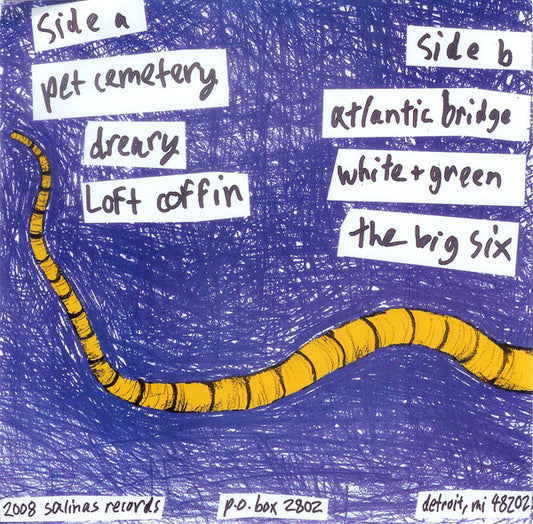 Side a
pet cemetery
dreary
Loft coffin
Side b
atlantic bridge
white + green
the big six
2008 salinas records
p.o. box 2802
detroit, mi 48202